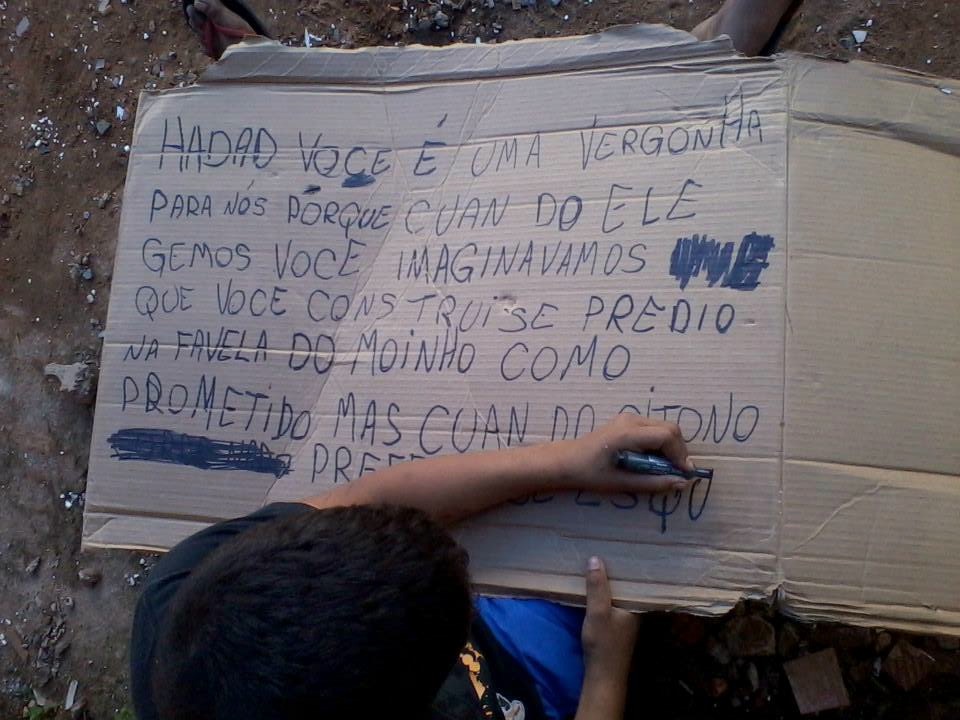 HADAD VOCE É UMA VERGONHA
PARA NÓS PORQUE CUAN DO ELE
GEMOS VOCE IMAGINAVAMOS
QUE VOCE CONSTRUiSE PREDIO
NA FAVELA DO MOINHO COMO
PROMETIDO MAS CUAN DO